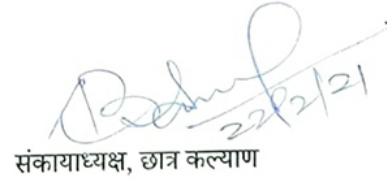 22/2/21
संकायाध्यक्ष, छात्र कल्याण